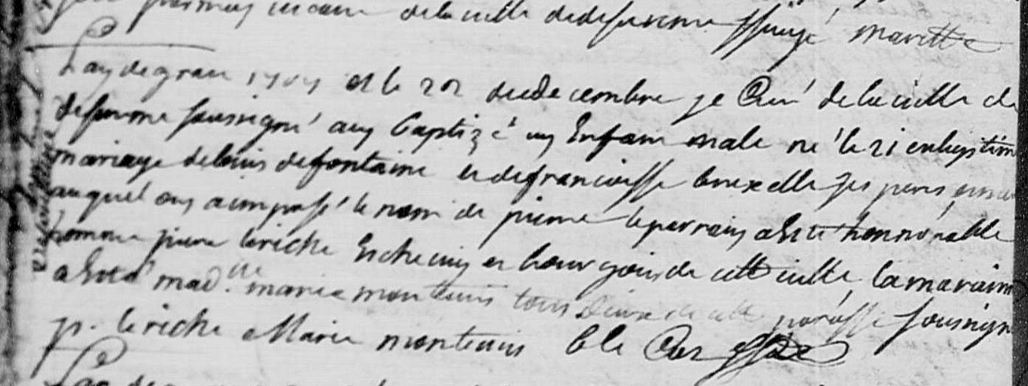 vicaire de la ville de desurenne marette
L'an de grace 1707 et le 22 du decembre je Curé de la ville de
desurenne soussigné ay baptizé un Enfant male né le 21 en legitime
mariage de louis defontaine et de francoisse bruxelle ses pere et mere
auquel on a imposé le nom de pierre le parrain a esté honnorable
homme pierre leriche Eschevin et bourgois de cette ville la maraine
a esté mad.lle marie monteuis tous deux de cette paroisse soussigne
p. leriche Marie monteuis